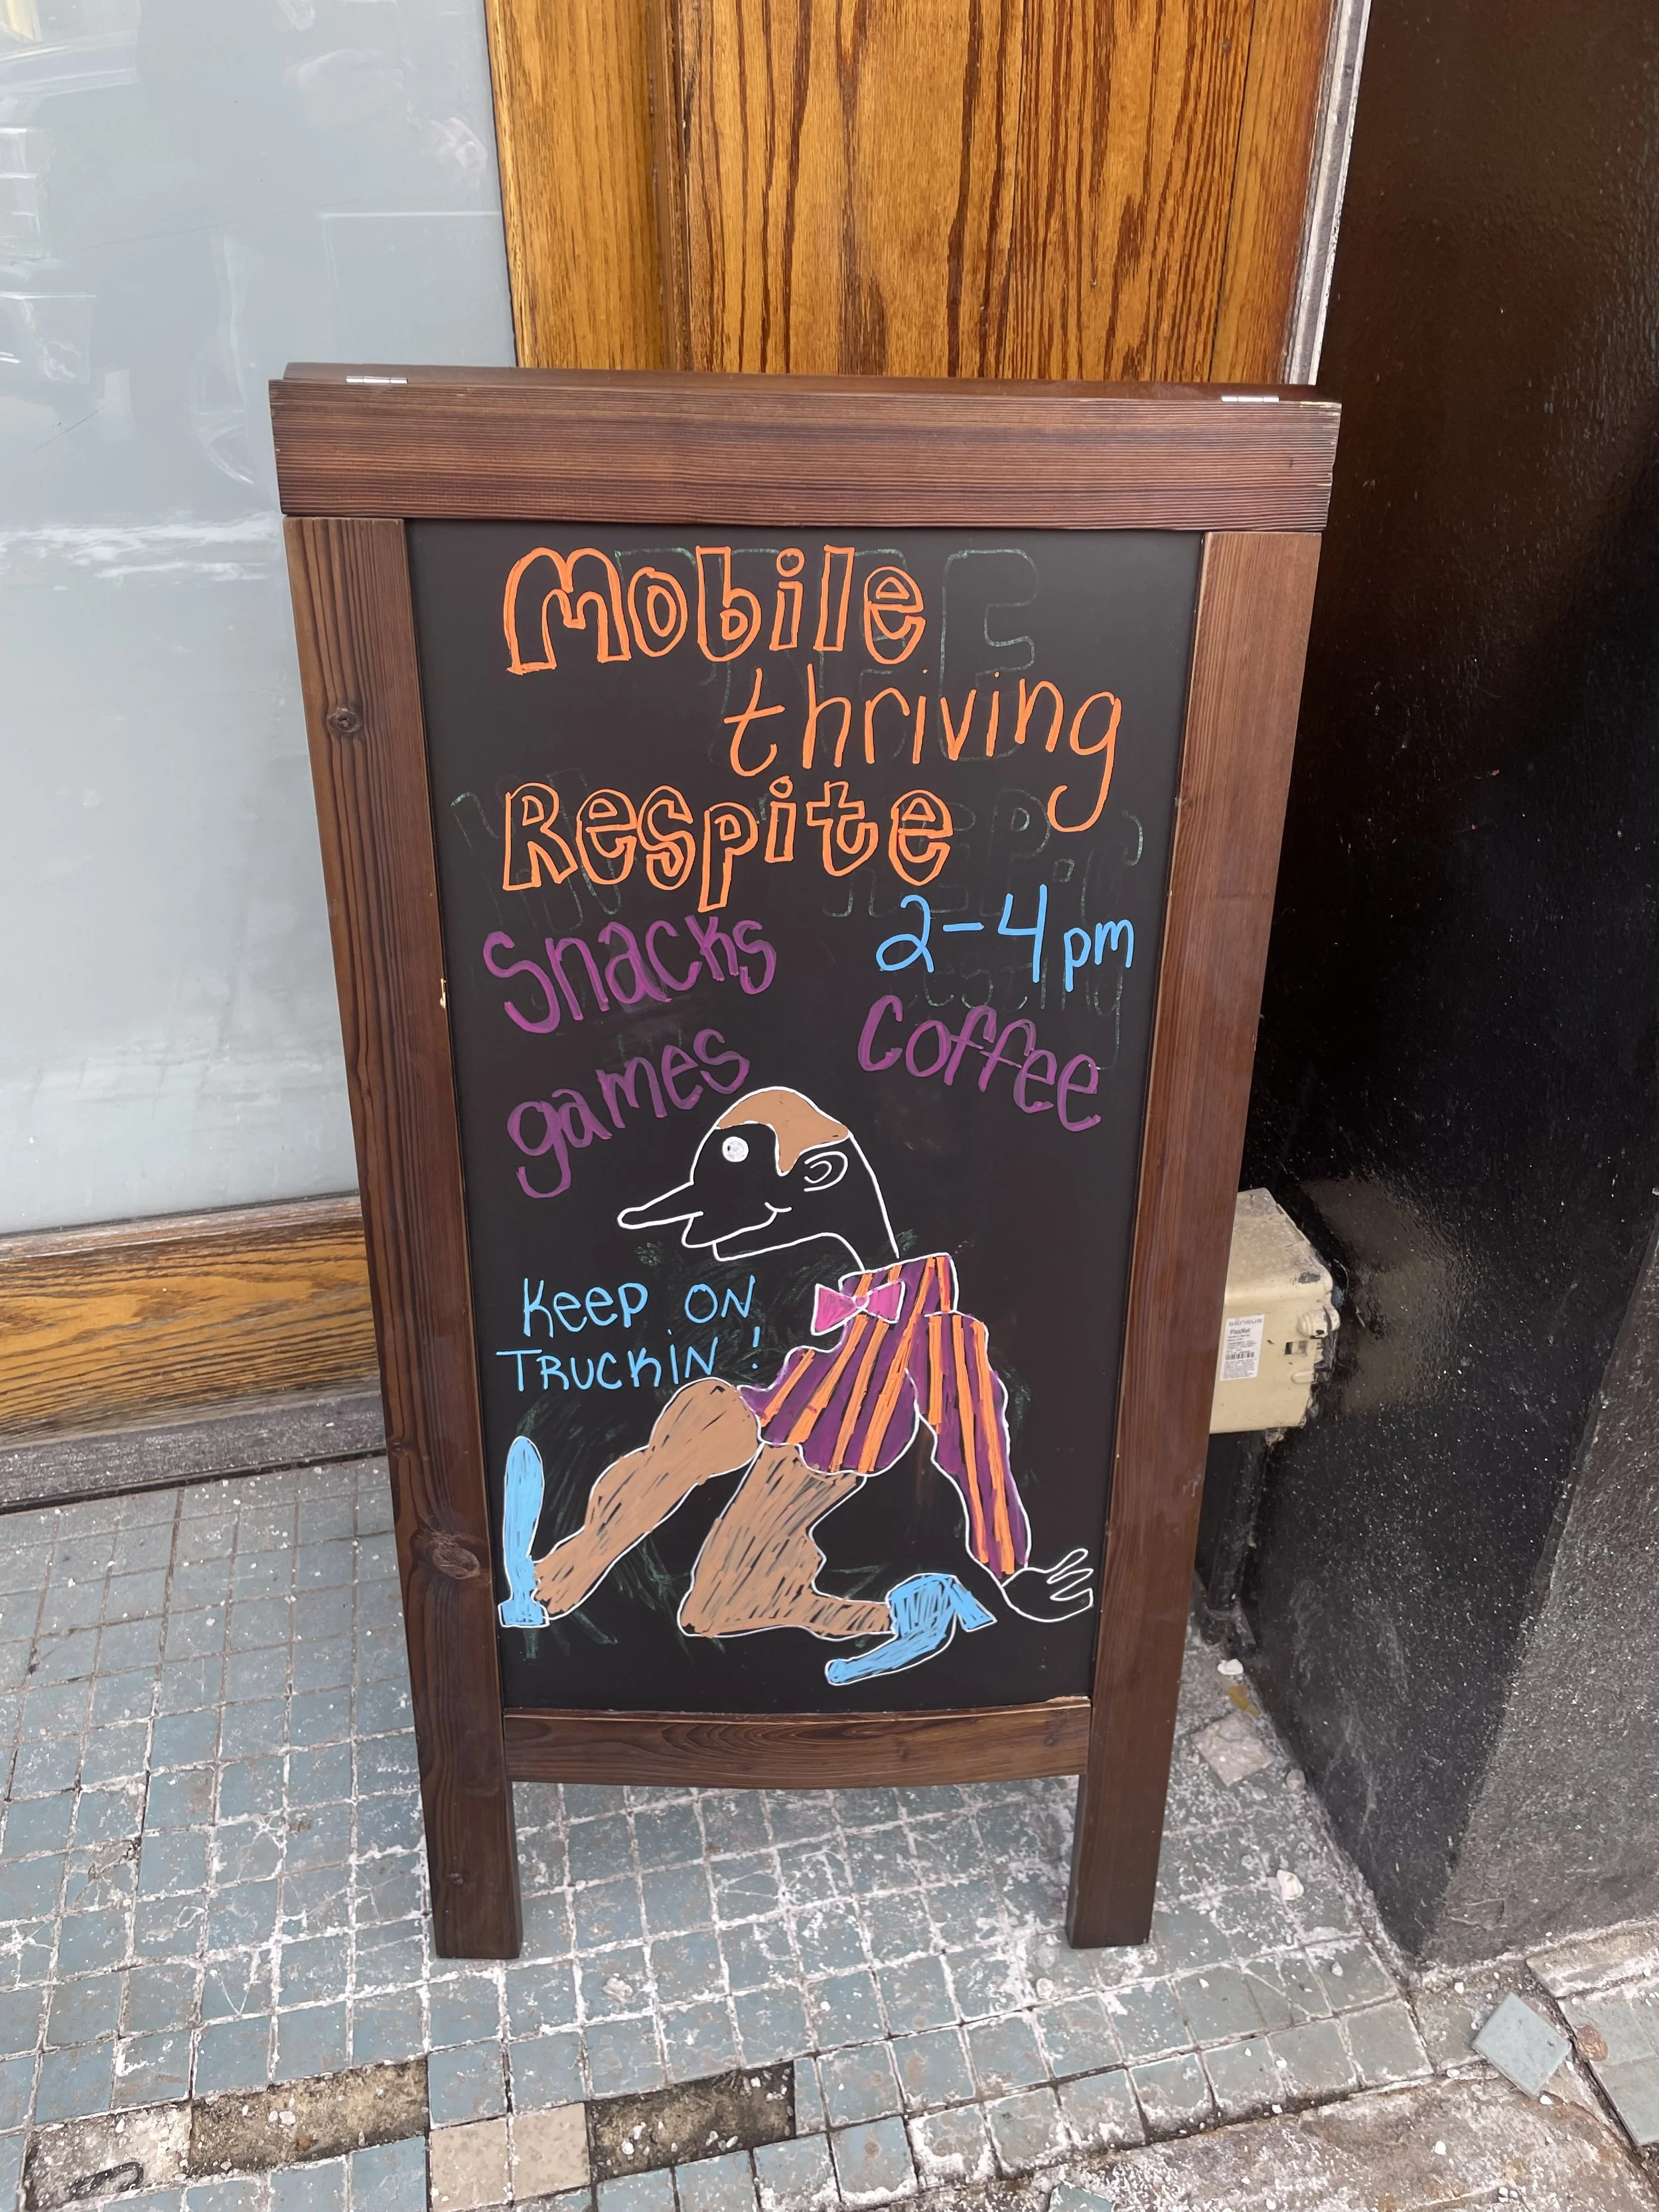 Mobile
thriving
Respite
2-4pm
Snacks
Coffee
games
Keep ON
TRUCKIN!
SENSUS
FlexNet